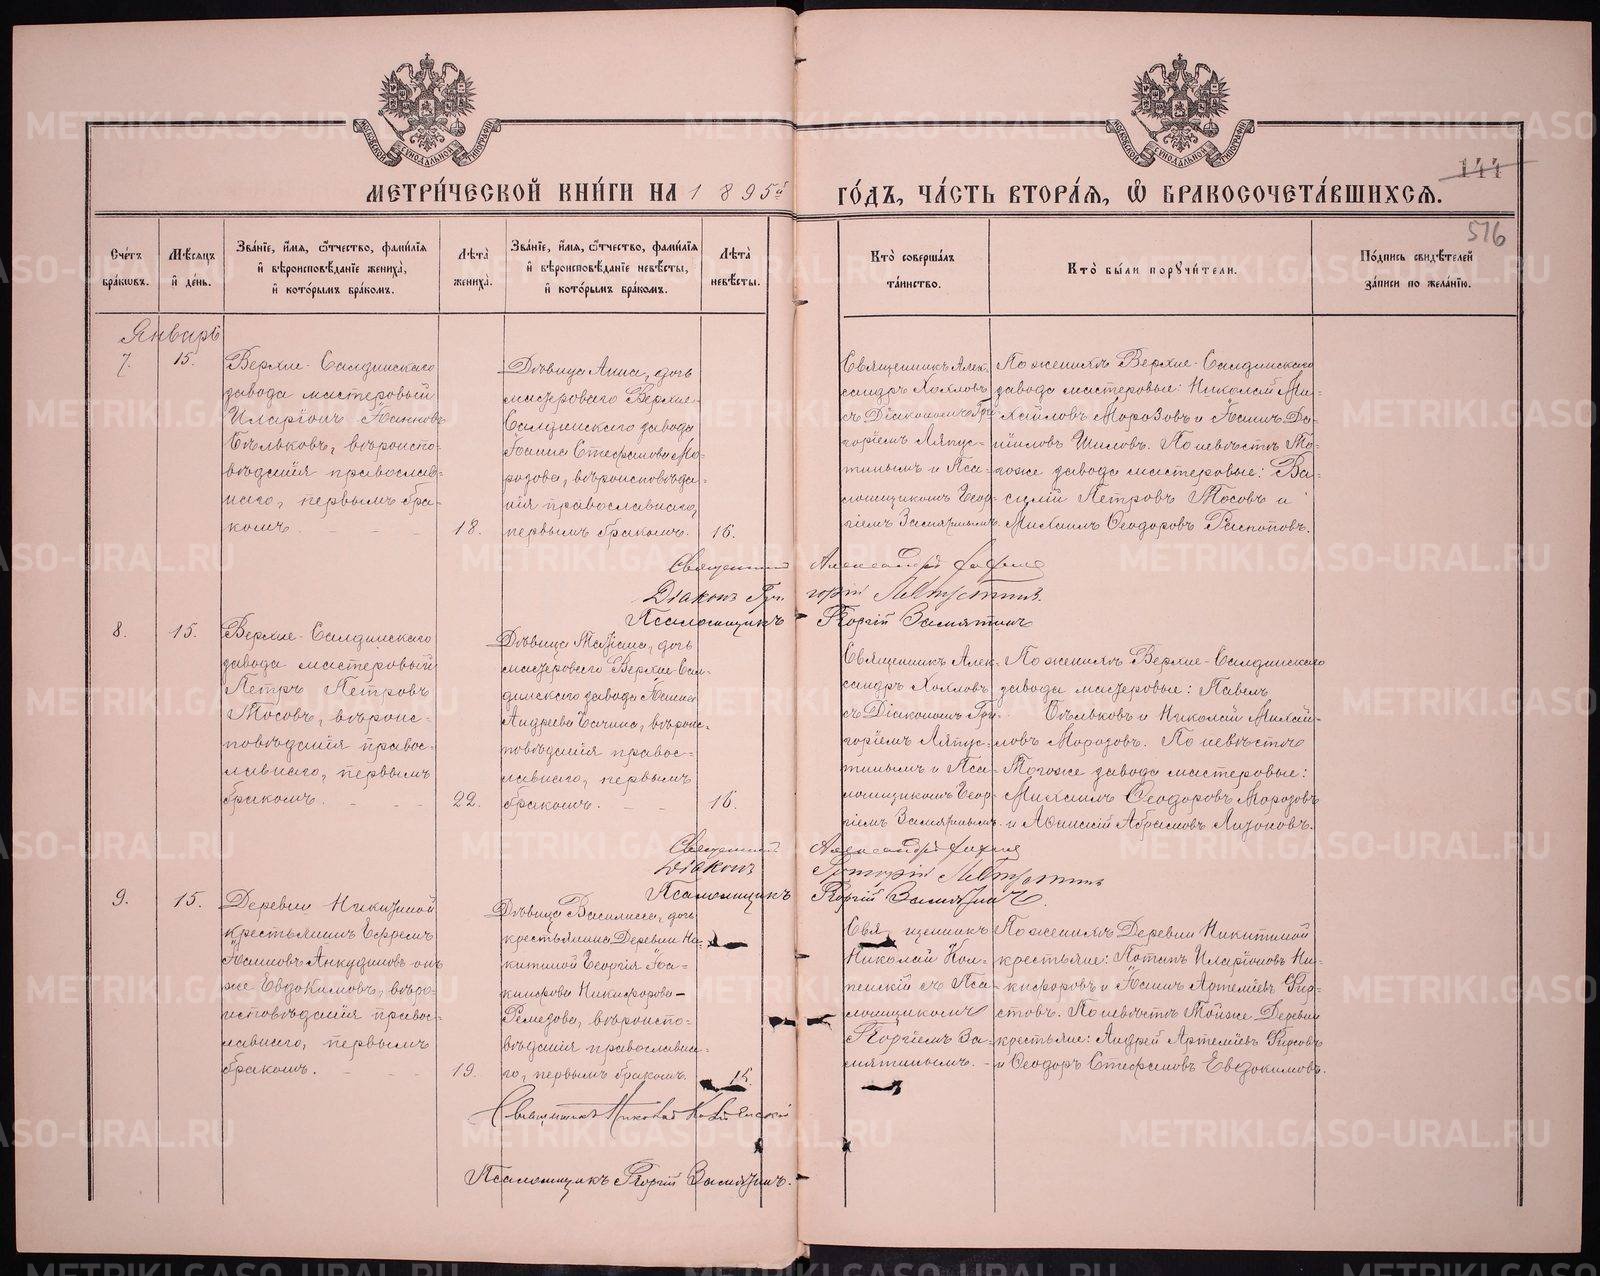 МЕТРИ́ЧЕСКОЙ КНИ́ГИ НА 1895й ГО́ДЪ, ЧА́СТЬ ВТОРА́Я, Ѽ БРАКОСОЧЕТА́ВШИХСЯ.
144
516
Сче́тъ бра́кѡвъ.
Мѣ́сяцъ и҆ де́нь.
Зва́нїе, и҆́мя, ѻ҆́тчество, фами́лїя и҆ вѣроисповѣ́данїе жениха̀, и҆ кото́рымъ бра́комъ.
Лѣта̀ жениха̀.
Зва́нїе, и҆́мя, ѻ҆́тчество, фами́лїя и҆ вѣроисповѣ́данїе невѣ́сты, и҆ кото́рымъ бра́комъ.
Лѣта̀ невѣ́сты.
Кто̀ соверша́лъ та́инство.
Кто̀ бы́ли поручи́тели.
По́дпись свидѣ́телей за́писи по жела́нїю.
Январь
7. 15.
Верхне-Салдинскаго
завода мастеровый
Иларіонъ Іоанновъ
Бѣльковъ, вѣроиспо-
вѣданія православ-
наго, первымъ бра-
комъ.
18.
Дѣвица Анна, дочь
мастероваго Верхне-
Салдинскаго завода
Іоанна Стефанова Мо-
розова, вѣроисповѣда-
нія православнаго,
первымъ бракомъ.
16.
Священникъ Алек-
сандръ Хохловъ
съ Діакономъ Гри-
горіемъ Ляпус-
тинымъ и Пса-
ломщикомъ Геор-
гіемъ Замятинымъ.
По женихѣ Верхне-Салдинскаго
завода мастеровые: Николай Ми-
хайловъ Морозовъ и Іоаннъ Да-
ніиловъ Шиловъ. По невѣстѣ То-
гоже завода мастеровые: Ва-
силій Петровъ Носовъ и
Михаилъ Ѳеодоровъ Распоповъ.
Священникъ Александръ
Діаконъ Григорій Ляпустинъ.
Псаломщикъ Георгій Замятинъ
8. 15.
Верхне-Салдинскаго
завода мастеровый
Петръ Петровъ
Носовъ, вѣроис-
повѣданія правос-
лавнаго, первымъ
бракомъ.
22.
Дѣвица Татіана, дочь
мастероваго Верхне-Сал-
динскаго завода Іоанна
Андреева вѣроис-
повѣданія правос-
лавнаго, первымъ
бракомъ.
16.
Священникъ Алек-
сандръ Хохловъ
съ Діакономъ Гри-
горіемъ Ляпус-
тинымъ и Пса-
ломщикомъ Геор-
гіемъ Замятинымъ.
По женихѣ Верхне-Салдинскаго
завода мастеровые: Павелъ
Бѣльковъ и Николай Михай-
ловъ Морозовъ. По невѣстѣ
Тогоже завода мастеровые:
Михаилъ Ѳеодоровъ Морозовъ
и Абрамовъ
Священникъ Александръ
Діаконъ Григорій Ляпустинъ
Псаломщикъ Георгій Замятинъ.
9. 15.
Деревни Никитиной
крестьянинъ Ефремъ
Іоанновъ Анкудиновъ онъ
же Евдокимовъ, вѣро-
исповѣданія правос-
лавнаго, первымъ
бракомъ.
19.
Дѣвица Василисса, дочь
крестьянина Деревни Ни-
китиной Георгія Іоа-
Никифорова-
Ремедова, вѣроиспо-
вѣданія православна-
го, первымъ бракомъ.
Священникъ
Николай Кол-
съ Пса-
ломщикомъ
Георгіемъ За-
мятинымъ.
По женихѣ Деревни Никитиной
крестьяне: Потапъ Иларіоновъ Ни-
кифоровъ и Іоаннъ Артеміевъ Фир-
совъ. По невѣстѣ Тойже Деревни
крестьяне: Андрей Артеміевъ Фирсовъ
и Ѳеодоръ Стефановъ Евдокимовъ.
Священникъ Николай
Псаломщикъ Георгій Замятинъ.
METRIKI.GASO-URAL.RU